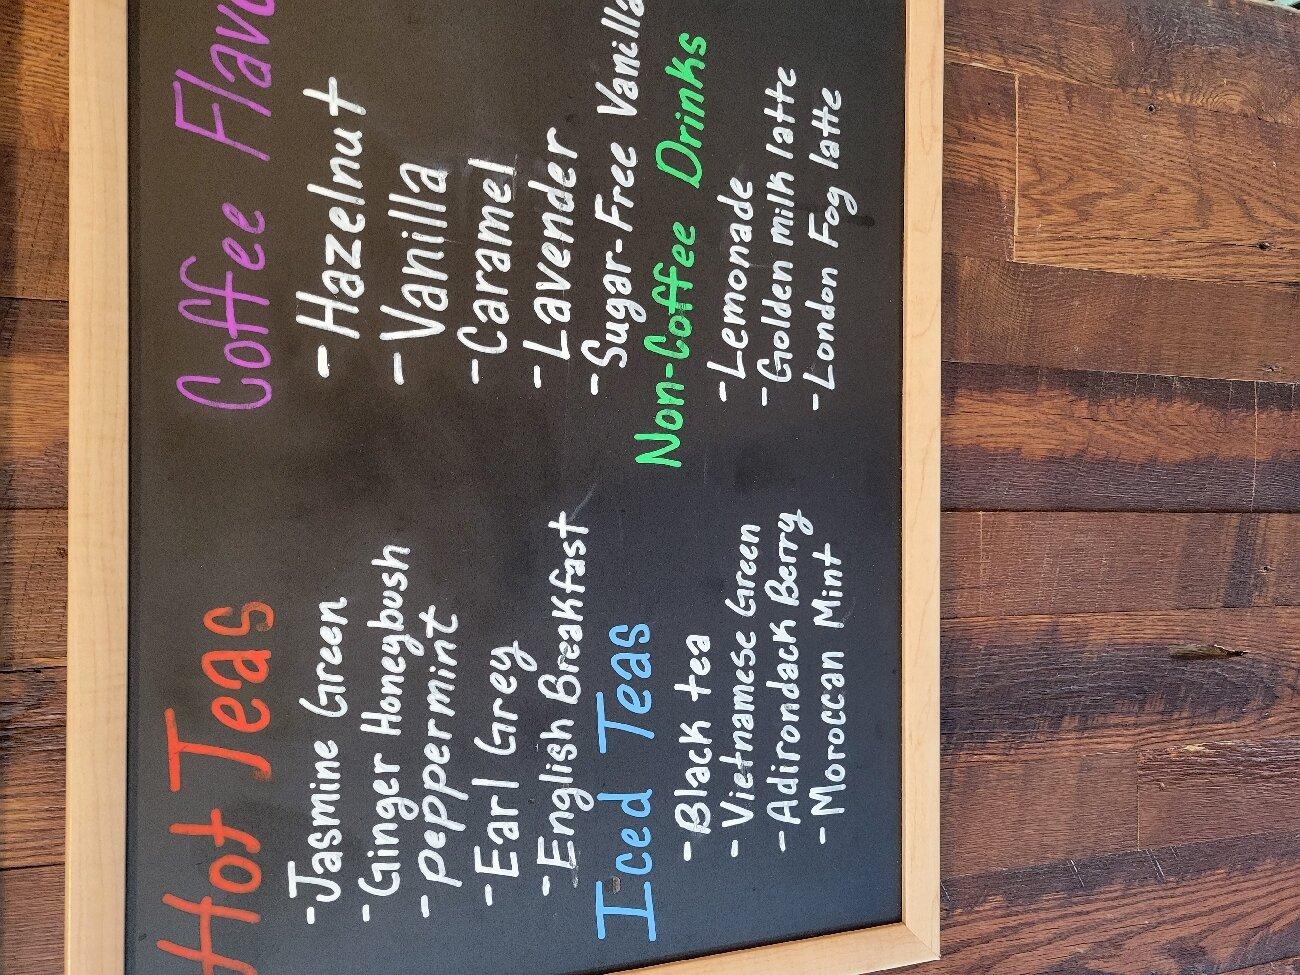 Hot Teas
-Jasmine Green
-Ginger Honeybush
-peppermint
-Earl Grey
-English Breakfast
Iced Teas
-Black tea
-Vietnamese Green
-Adirondack Berry
-Moroccan Mint
Coffee
-Hazelnut
-Vanilla
-Caramel
-Lavender
-Sugar-Free Vanilla
Non-Coffee Drinks
-Lemonade
-Golden milk latte
-London Fog latte